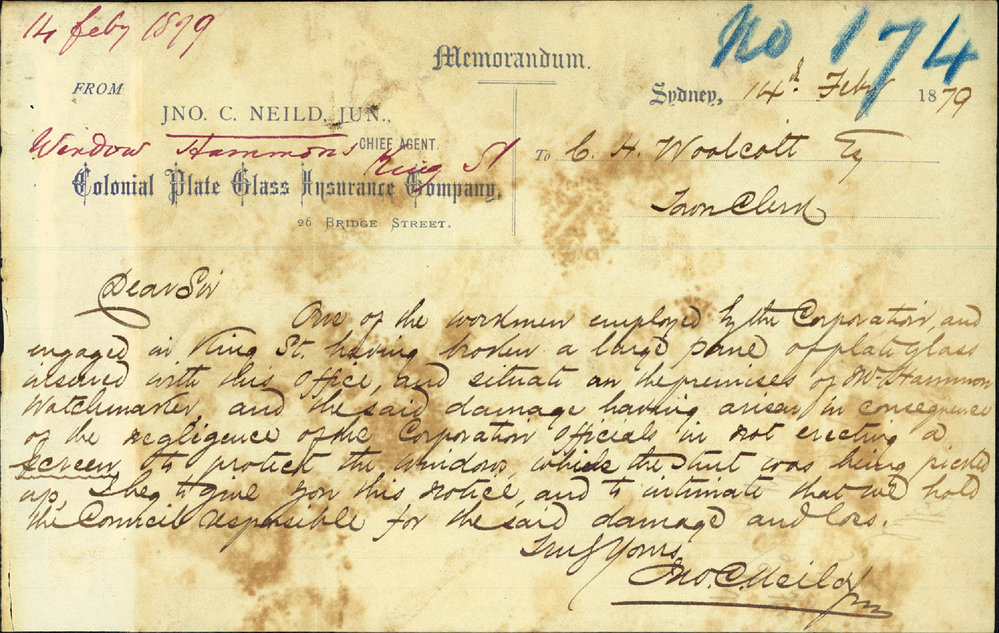 14 feby 1879
No 174
Memorandum.
FROM
JNO. C. NEILD, JUN.,
CHIEF AGENT.
Window Hammons King St
Colonial Plate Glass Insurance Company,
26 BRIDGE STREET.
Sydney, 14th Feby 1879
To C. H. Woolcott Esq
Town Clerk
Dear Sir
One of the workmen employed by the Corporation, and
engaged in King St. having broken a large pane of plate glass
insured with this office, and situate on the premises of Mr Hammon
Watchmaker, and the said damage having arisen in consequence
of the negligence of the Corporation Officials in not erecting a
screen to protect the windows while the street was being picked
up, I beg to give you this notice, and to intimate that we hold
the Council responsible for the said damage and loss.
Truly Yours
Jno. C. Neild Jun